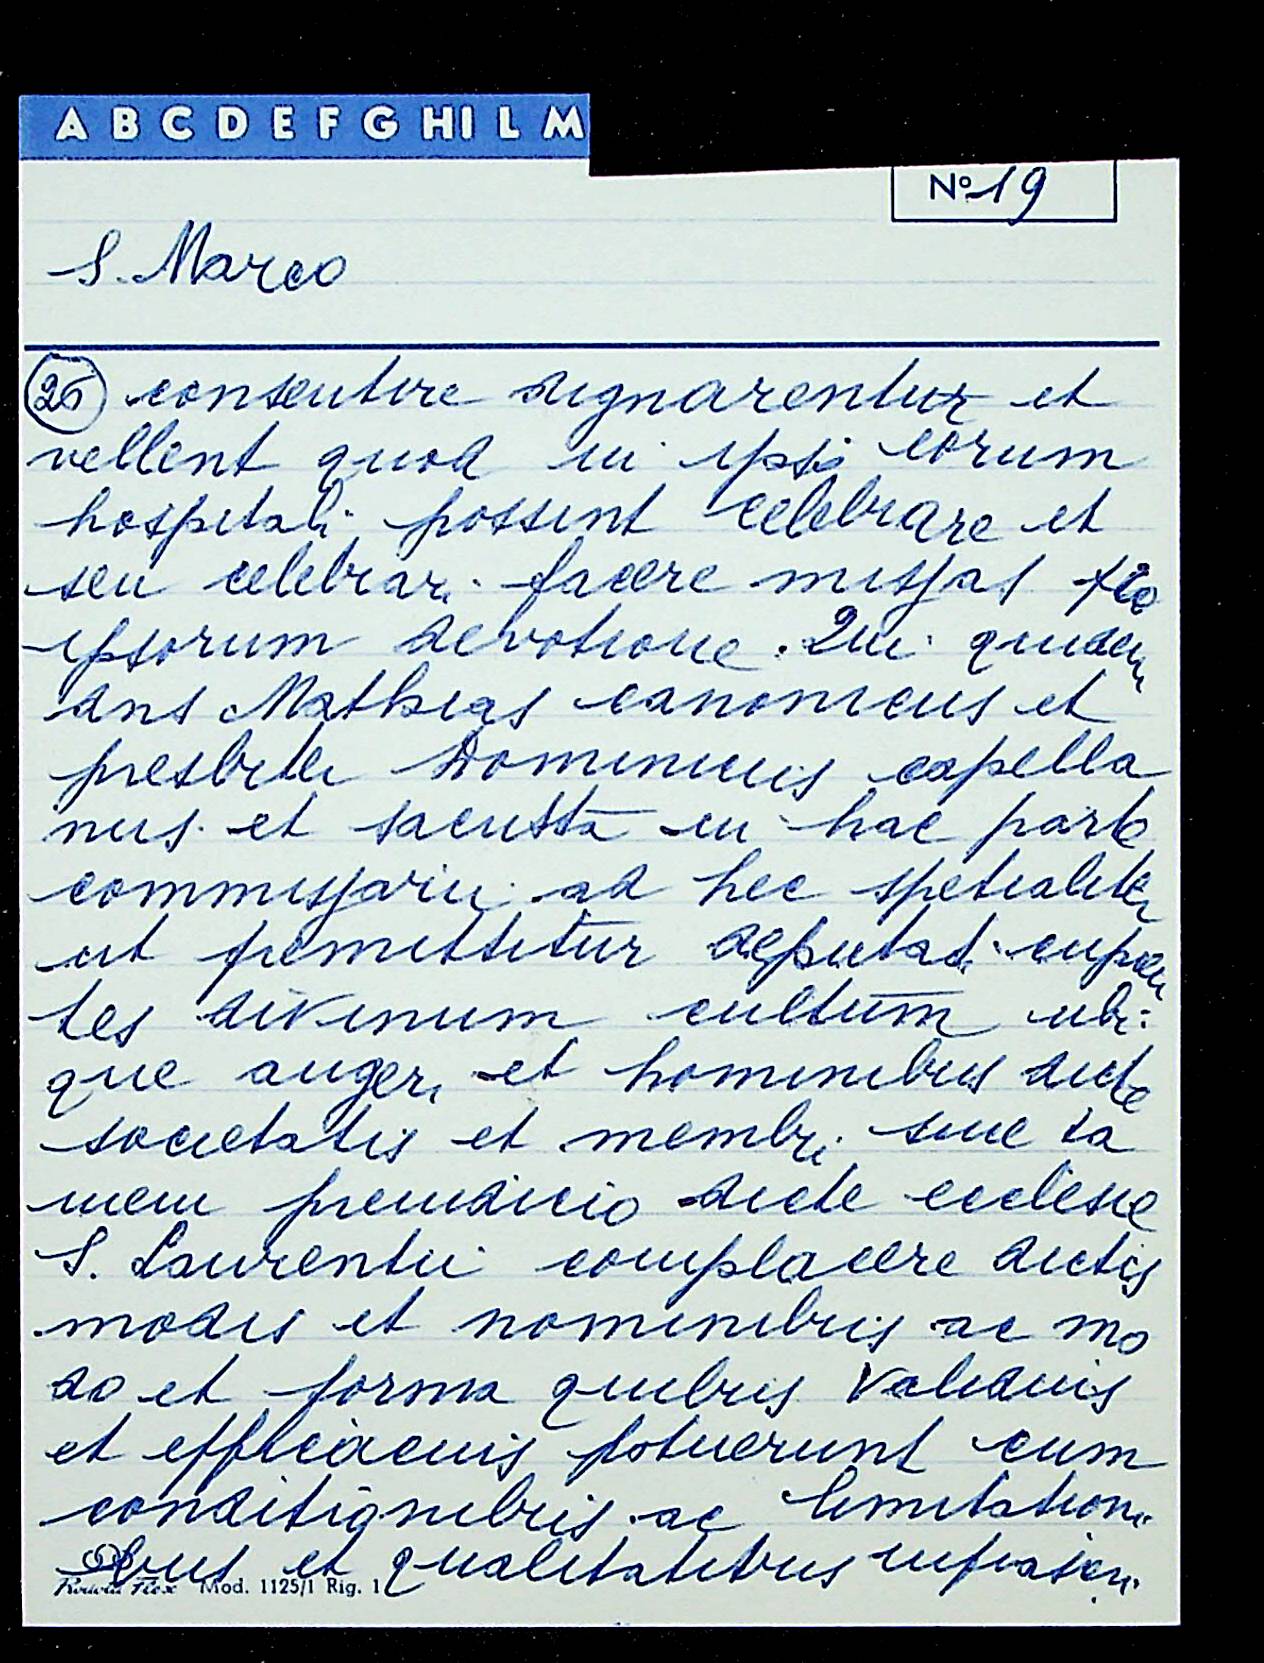 A B C D E F G HI L M
Nº 19
S. Marco
26 consentire dignarentur et
vellent quod in ipsi eorum
hospitali possent celebrare et
seu celebrari facere missas pro
ipsorum devotione. Qui quidem
dns Mathias canonicus et
presbiter Dominicus capella
nus et sacrista in hac parte
commissarii ad hec spetialiter
ut premittitur deputati cupien
tes divinum cultum ubi:
que augeri et hominibus dicte
societatis et membri sine ta
men preiudicio dicte ecclesie
S. Laurentii complacere dictis
modis et nominibus ac mo
do et forma quibus validius
et efficacius potuerunt cum
conditignibus ac limitationi
bus et qualitatibus infrascri
Mod. 1125/1 Rig. 1